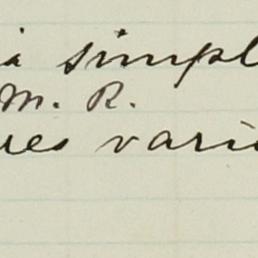 simpl
M. R.
res vari